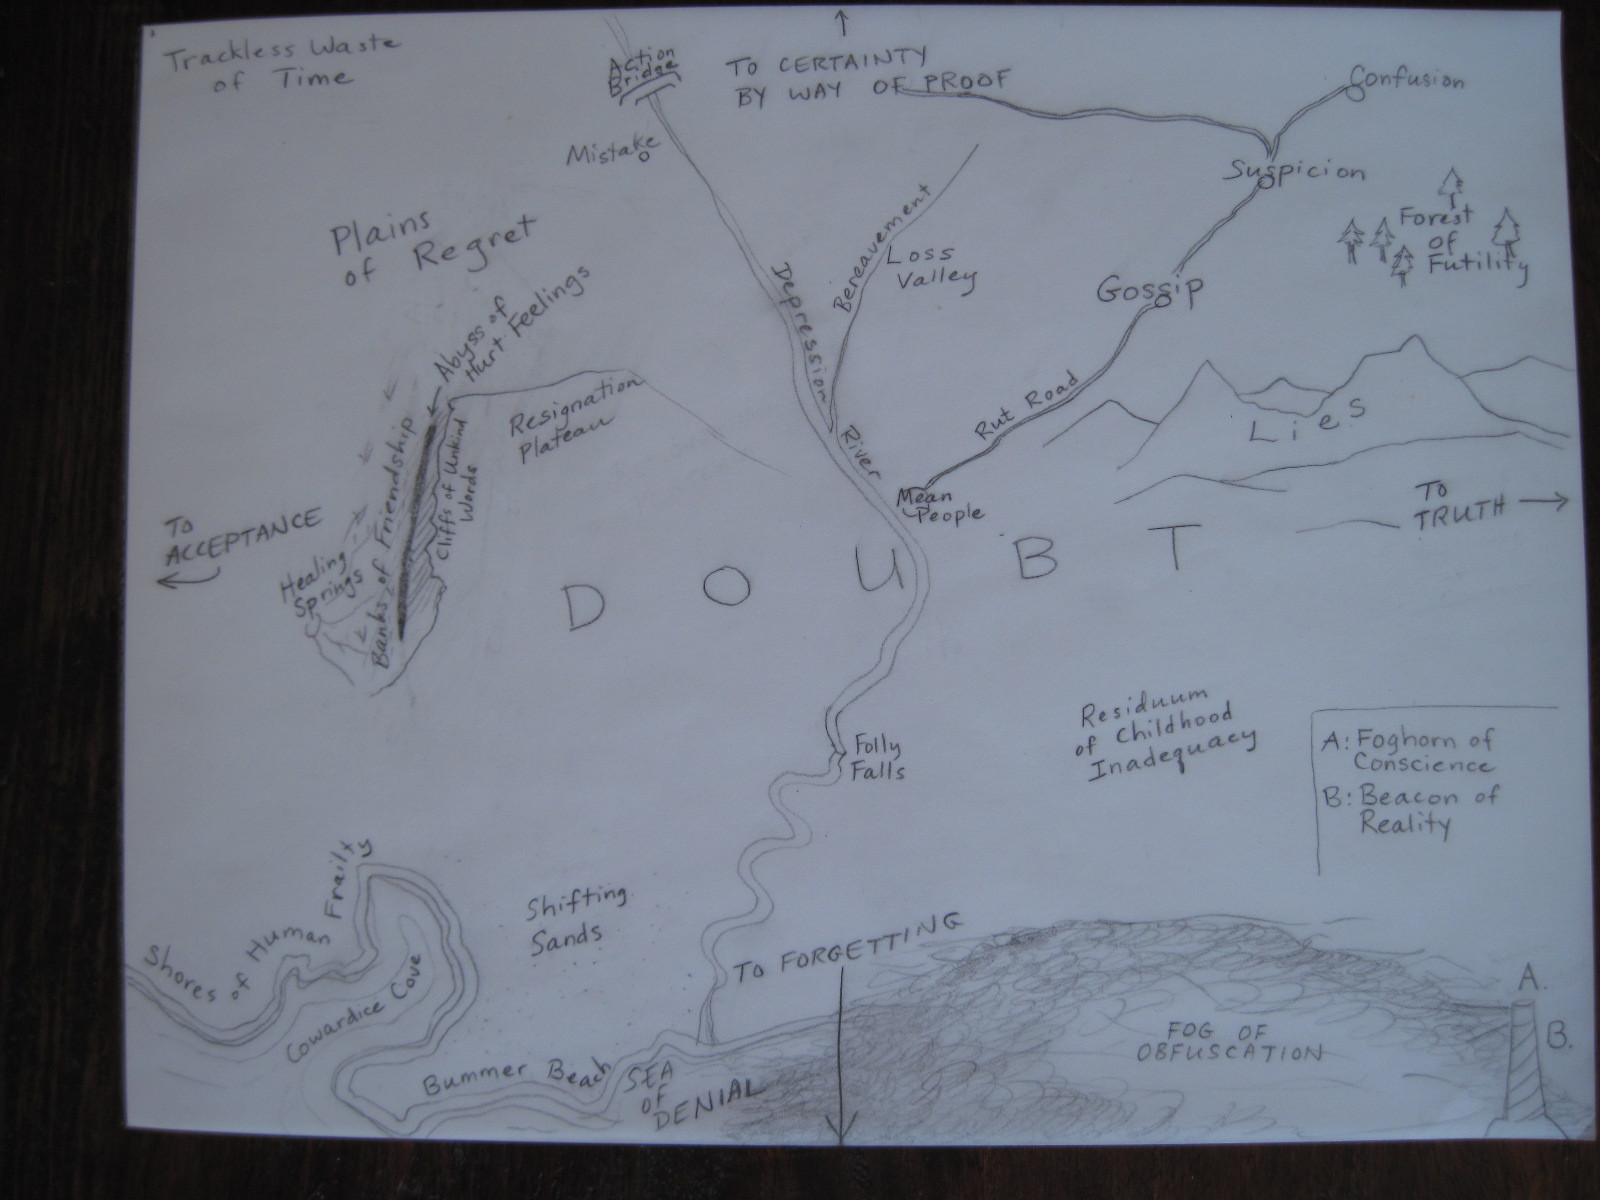 Trackless Waste
of Time
Action
Bridge
TO CERTAINTY
BY WAY OF PROOF
Confusion
Mistake
Suspicion
Plains
of Regret
Forest
of
Futility
Bereavement
Loss
Valley
Gossip
Abyss of
Hurt Feelings
Depression
River
Resignation
Plateau
Rut Road
Lies
Mean
People
TO
TRUTH
TO
ACCEPTANCE
Healing
Springs
Banks of Friendship
Cliffs of Unkind
Words
DOUBT
Folly
Falls
Residuum
of Childhood
Inadequacy
A: Foghorn of
Conscience
B: Beacon of
Reality
Shores of Human Frailty
Cowardice Cove
Shifting
Sands
TO FORGETTING
Bummer Beach
SEA
OF
DENIAL
FOG OF
OBFUSCATION
A.
B.